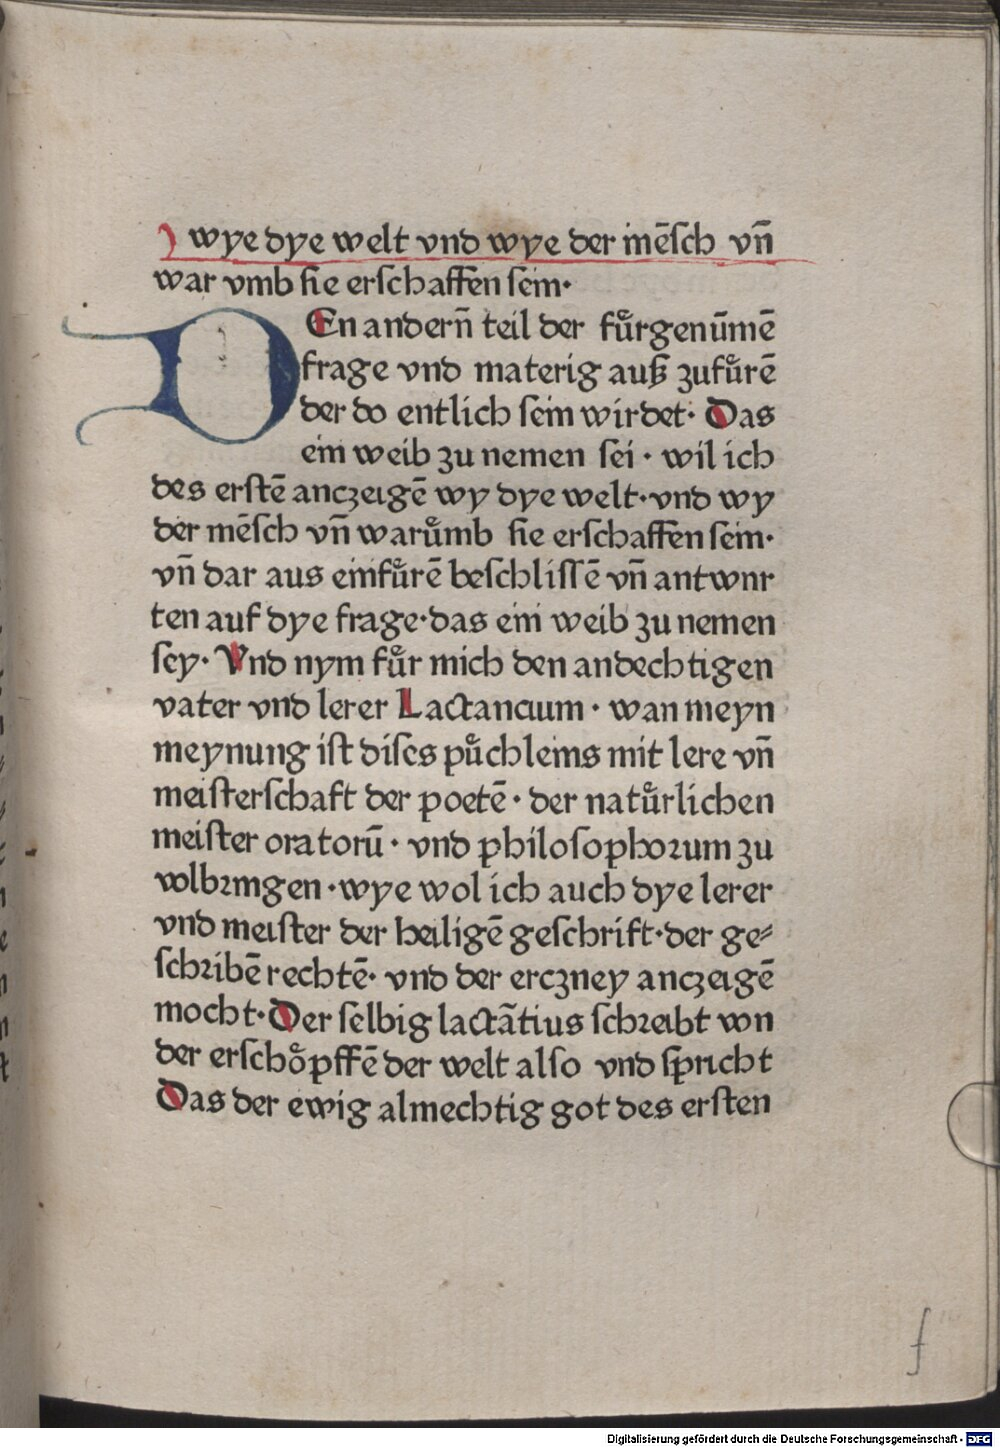 wye dye welt vnd wye der mēſch vn̄
war vmb ſie erſchaffen ſein·
DEn andern̄ teil der fuͦrgenūmē
frage vnd materig auß zufuͦrē
der do entlich ſein wirdet· Das
ein weib zu nemen ſei · wil ich
des erſtē anczeigē wy dye welt·vnd wy
der mēſch vn̄ waruͦmb ſie erſchaffen ſein·
vn̄ dar aus einfuͦrē beſchliſſē vn̄ antwur
ten auf dye frage·das ein weib zu nemen
ſey· Vnd nym fuͦr mich den andechtigen
vater vnd lerer Lactancium · wan meyn
meynung iſt diſes puͦchleins mit lere vn̄
meiſterſchaft der poetē · der natuͦrlichen
meiſter oratorū · vnd philoſophoꝛum zu
volbꝛingen ·wye wol ich auch dye lerer
vnd meiſter der heiligē geſchrift·der ge⸗
ſchꝛibē rechtē· vnd der erczney anczeigē
mocht·Der ſelbig lactātius ſchꝛeibt von
der erſchoͦpffē der welt alſo vnd ſpricht
Das der ewig almechtig got des erſten
f
Digitalisierung gefördert durch die Deutsche Forschungsgemeinschaft - DFG